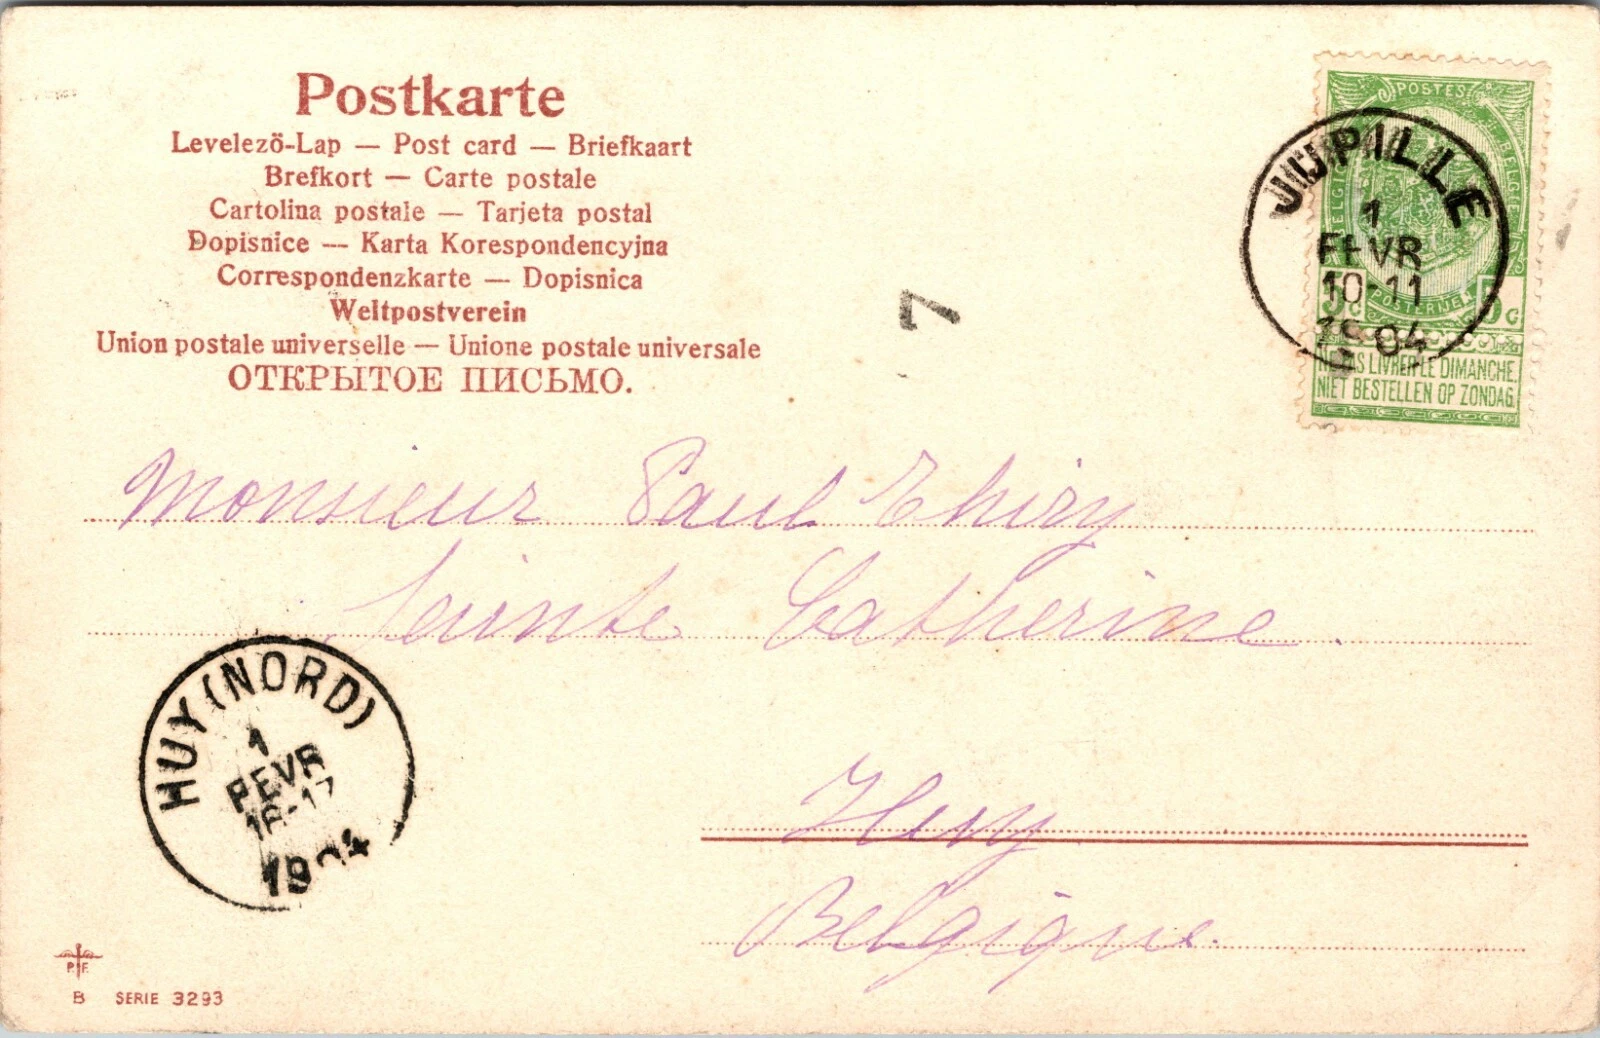 Postkarte
Levelezö-Lap — Post card — Briefkaart
Brefkort — Carte postale
Cartolina postale — Tarjeta postal
Dopisnice — Karta Korespondencyjna
Correspondenzkarte — Dopisnica
Weltpostverein
Union postale universelle — Unione postale universale
ОТКРЫТОЕ ПИСЬМО.
POSTES
BELGIQUE
BELGIE
POSTERIJEN
5 C
5 C
NE PAS LIVRER LE DIMANCHE.
NIET BESTELLEN OP ZONDAG.
JUPILLE
1
FEVR
10-11
1904
7
Monsieur Paul Thiry
Sainte Catherine.
Huy
Belgique.
HUY (NORD)
1
FEVR
16-17
1904
P. F.
B SERIE 3293